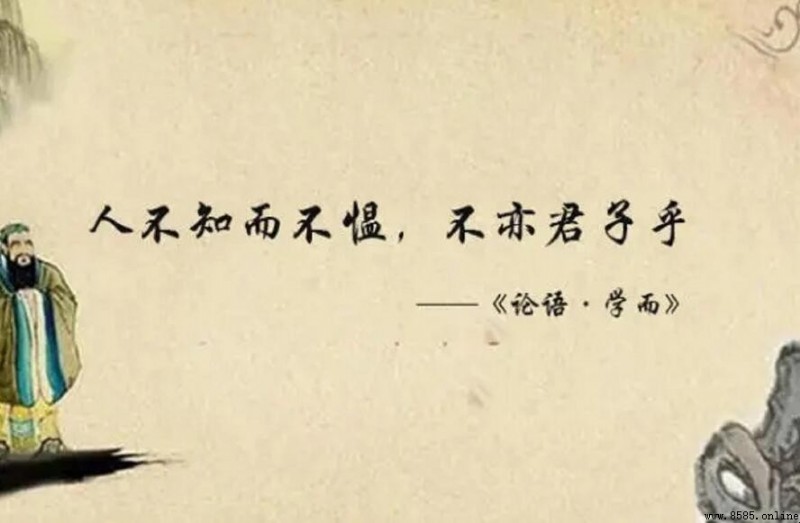 人不知而不愠，不亦君子乎
——《论语·学而》
www.8585.online